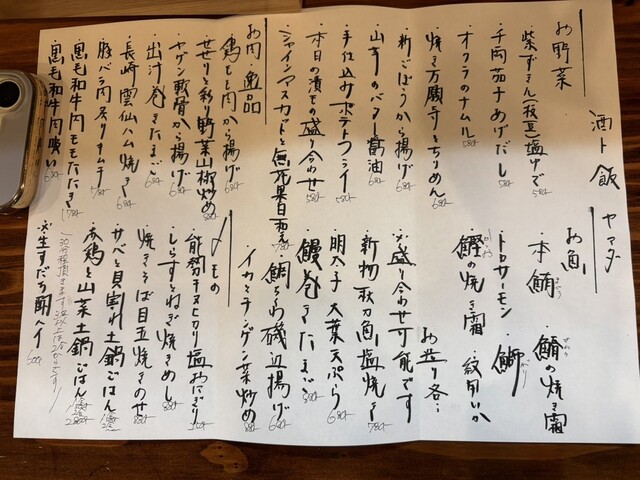 酒ト飯 ヤマダ
お野菜
・柴ずきん(枝豆)塩ゆで 580-
・千両茄子あげだし 680-
・オクラのナムル 580-
・焼き万願寺とちりめん 680-
・新ごぼうから揚げ 680-
・山芋のバター醤油 680-
・手仕込みポテトフライ 580-
・本日の漬もの盛り合わせ 580-
・シャインマスカットと無花果白和え 780-
お肉・逸品
・鶏もも肉から揚げ 680-
・せせりと彩り野菜山椒炒め 880-
・ヤゲン軟骨から揚げ 680-
・出汁巻きたまご 680-
・長崎雲仙ハム焼き 680-
・豚バラ肉炙りキムチ 780-
・黒毛和牛肉ももたたき 1780-
・黒毛和牛肉吸い 680-
お魚
・本鮪 まぐろ ・鰆の焼き霜 さわら
・トロサーモン ・鰤 ぶり
・鰹の焼き霜 かつお ・紋甲いか
お造り各…
※盛り合わせ可能です
・新物秋刀魚塩焼き 780-
・明太子大葉天ぷら 680-
・鰻巻きたまご 980-
・鯛ちくわ磯辺揚げ 680-
・イカとチンゲン菜炒め 880-
〆もの
・能勢キヌヒカリ塩おにぎり
・しらすとねぎ焼きめし 880-
・焼きそば目玉焼きのせ 880-
・サバと貝割れ土鍋ごはん
・赤鶏と山菜土鍋ごはん
※生すだち酎ハイ 600-